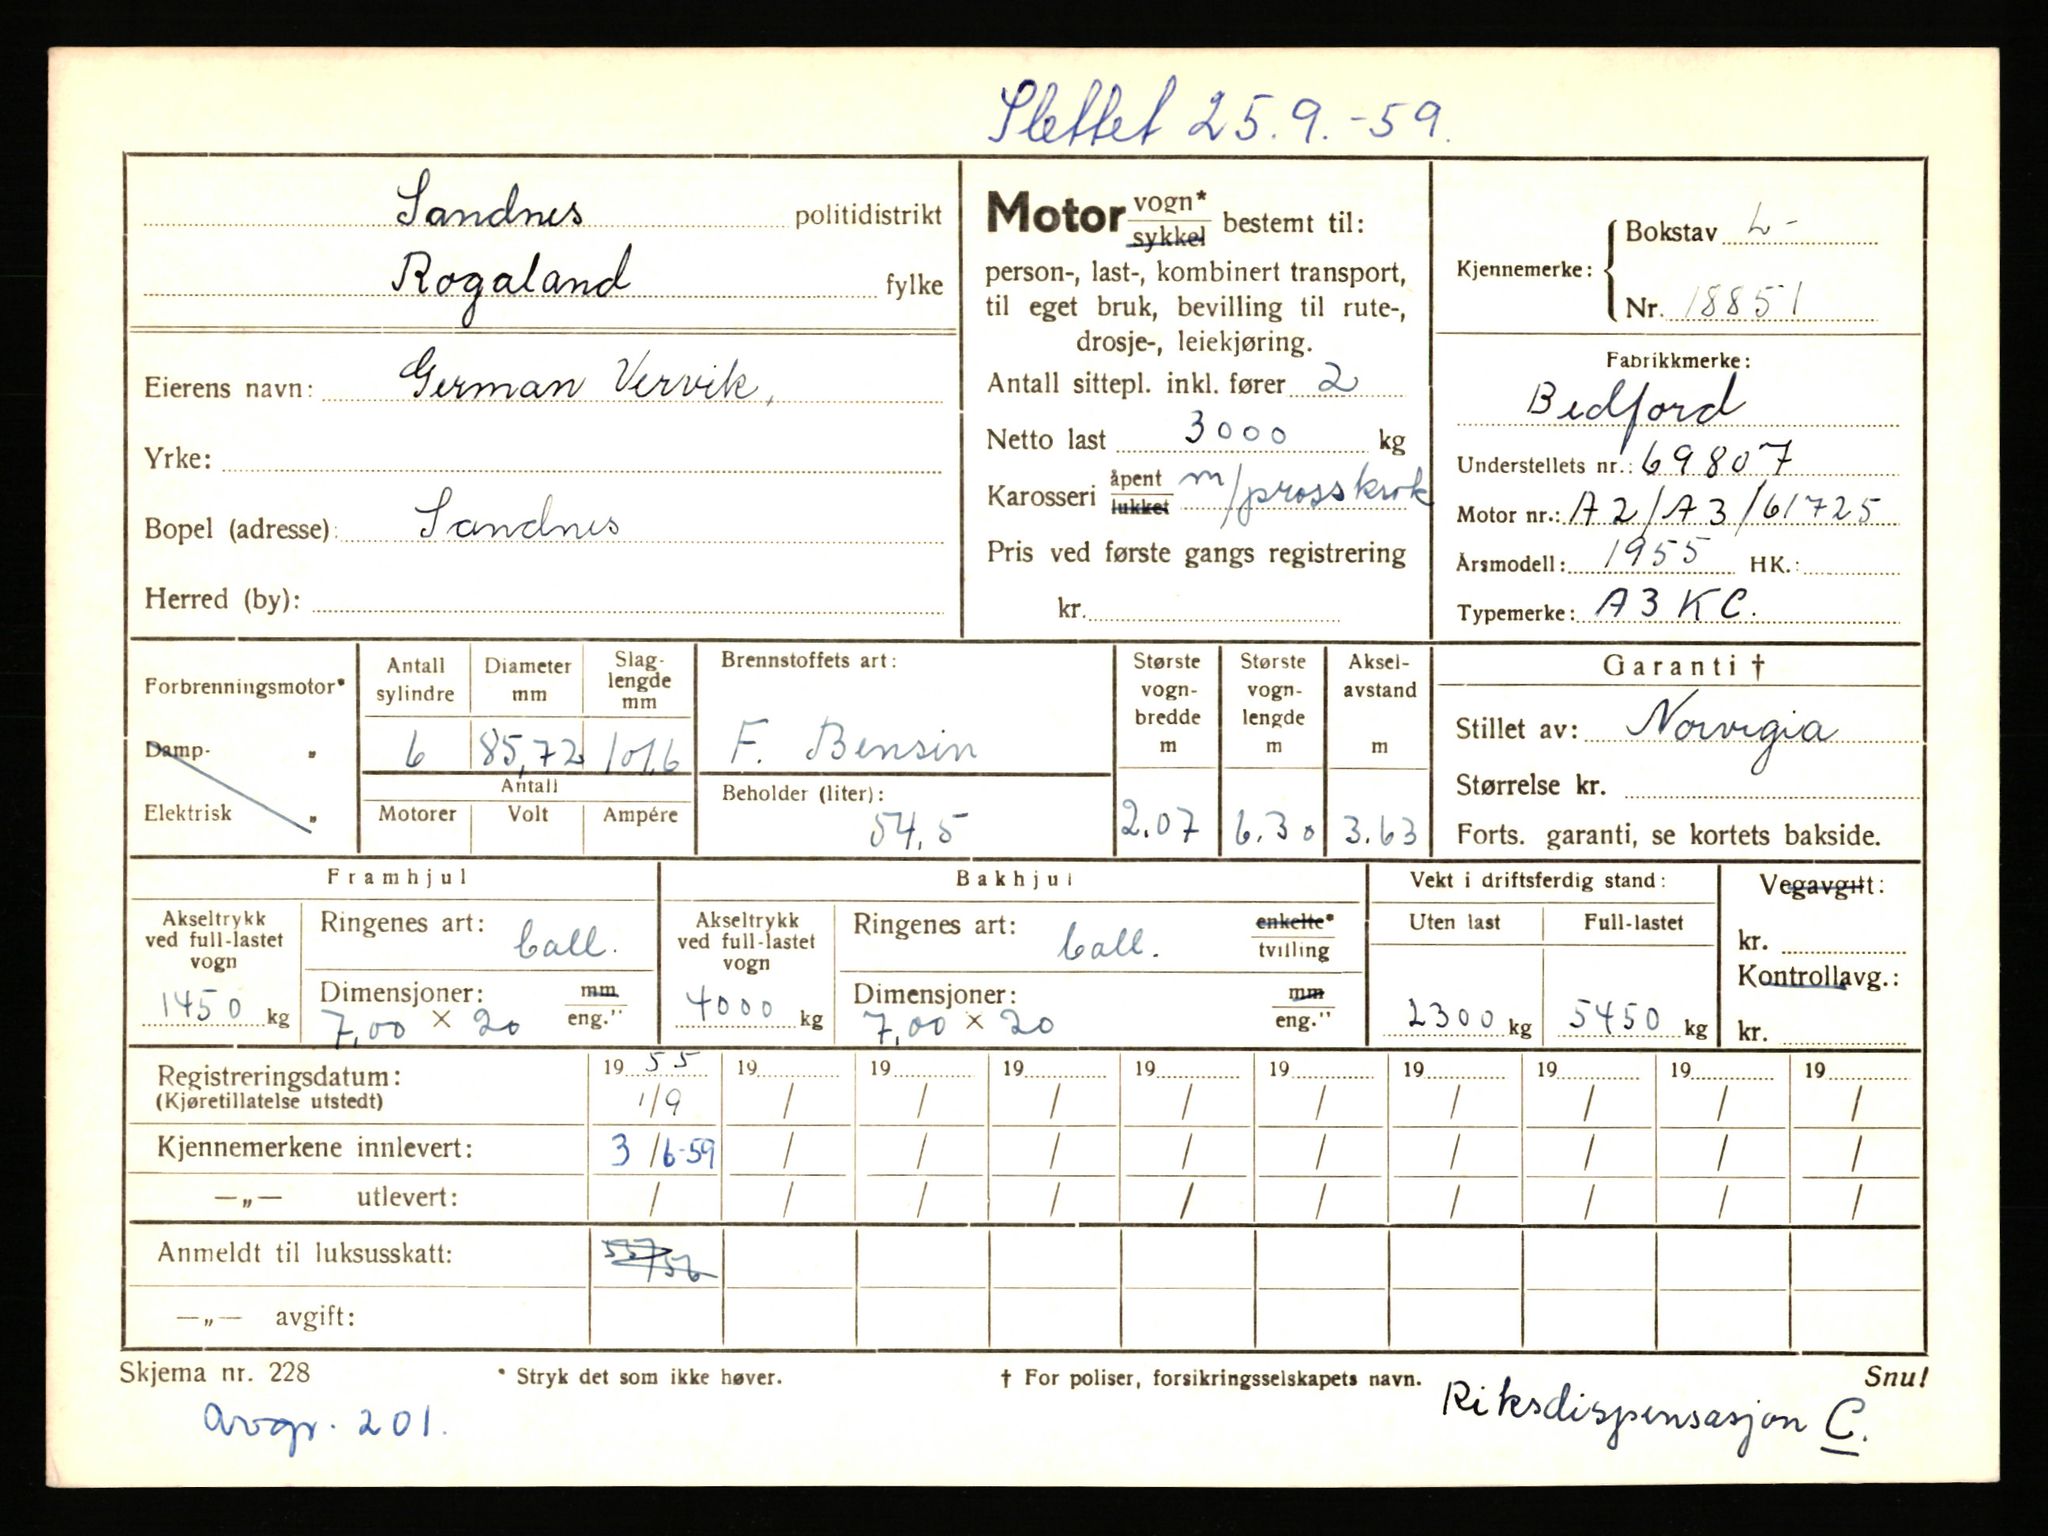 Slettet 25.9.-59.
Sandnes politidistrikt
Rogaland fylke
Eierens navn: German Vervik,
Yrke:
Bopel (adresse): Sandnes
Herred (by):
Motor vogn* sykkel bestemt til:
person-, last-, kombinert transport,
til eget bruk, bevilling til rute-,
drosje-, leiekjøring.
Antall sittepl. inkl. fører 2
Netto last 3000 kg
Karosseri åpent lukket m/prosskrok
Pris ved første gangs registrering
kr.
Kjennemerke: Bokstav L-
Nr. 18851
Fabrikkmerke:
Bedford
Understellets nr.: 69807
Motor nr.: A2/A3/61725
Årsmodell: 1955 HK.:
Typemerke: A3KC.
Forbrenningsmotor*
Damp- "
Elektrisk "
Antall sylindre
6
Diameter mm
85,72
Slag-lengde mm
101,6
Antall
Motorer Volt Ampére
Brennstoffets art:
F. Bensin
Beholder (liter):
54,5
Største vogn-bredde m
2.07
Største vogn-lengde m
6.30
Aksel-avstand m
3.63
Garanti †
Stillet av: Norvegia
Størrelse kr.
Forts. garanti, se kortets bakside.
Framhjul
Akseltrykk ved full-lastet vogn
1450 kg
Ringenes art: Ball.
Dimensjoner: mm eng."
7,00 × 20
Bakhjul
Akseltrykk ved full-lastet vogn
4000 kg
Ringenes art: Ball. enkelte* tvilling
Dimensjoner: mm eng."
7,00 × 20
Vekt i driftsferdig stand:
Uten last Full-lastet
2300 kg 5450 kg
Vegavgift:
kr.
Kontrollavg.:
kr.
Registreringsdatum: 1955 19 19 19 19 19 19 19 19 19
(Kjøretillatelse utstedt) 1/9 / / / / / / / / /
Kjennemerkene innlevert: 3/6-59 / / / / / / / / /
—„— utlevert: / / / / / / / / / /
Anmeldt til luksusskatt:
—„— avgift:
Skjema nr. 228 * Stryk det som ikke høver. † For poliser, forsikringsselskapets navn. Snu!
Avgr. 201. Riksdispensasjon C.